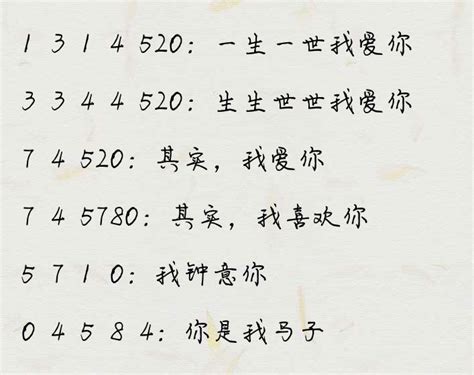 1 3 1 4 520：一生一世我爱你
3 3 4 4 520：生生世世我爱你
7 4 520：其实，我爱你
7 4 5780：其实，我喜欢你
5 7 1 0：我钟意你
0 4 5 8 4：你是我马子